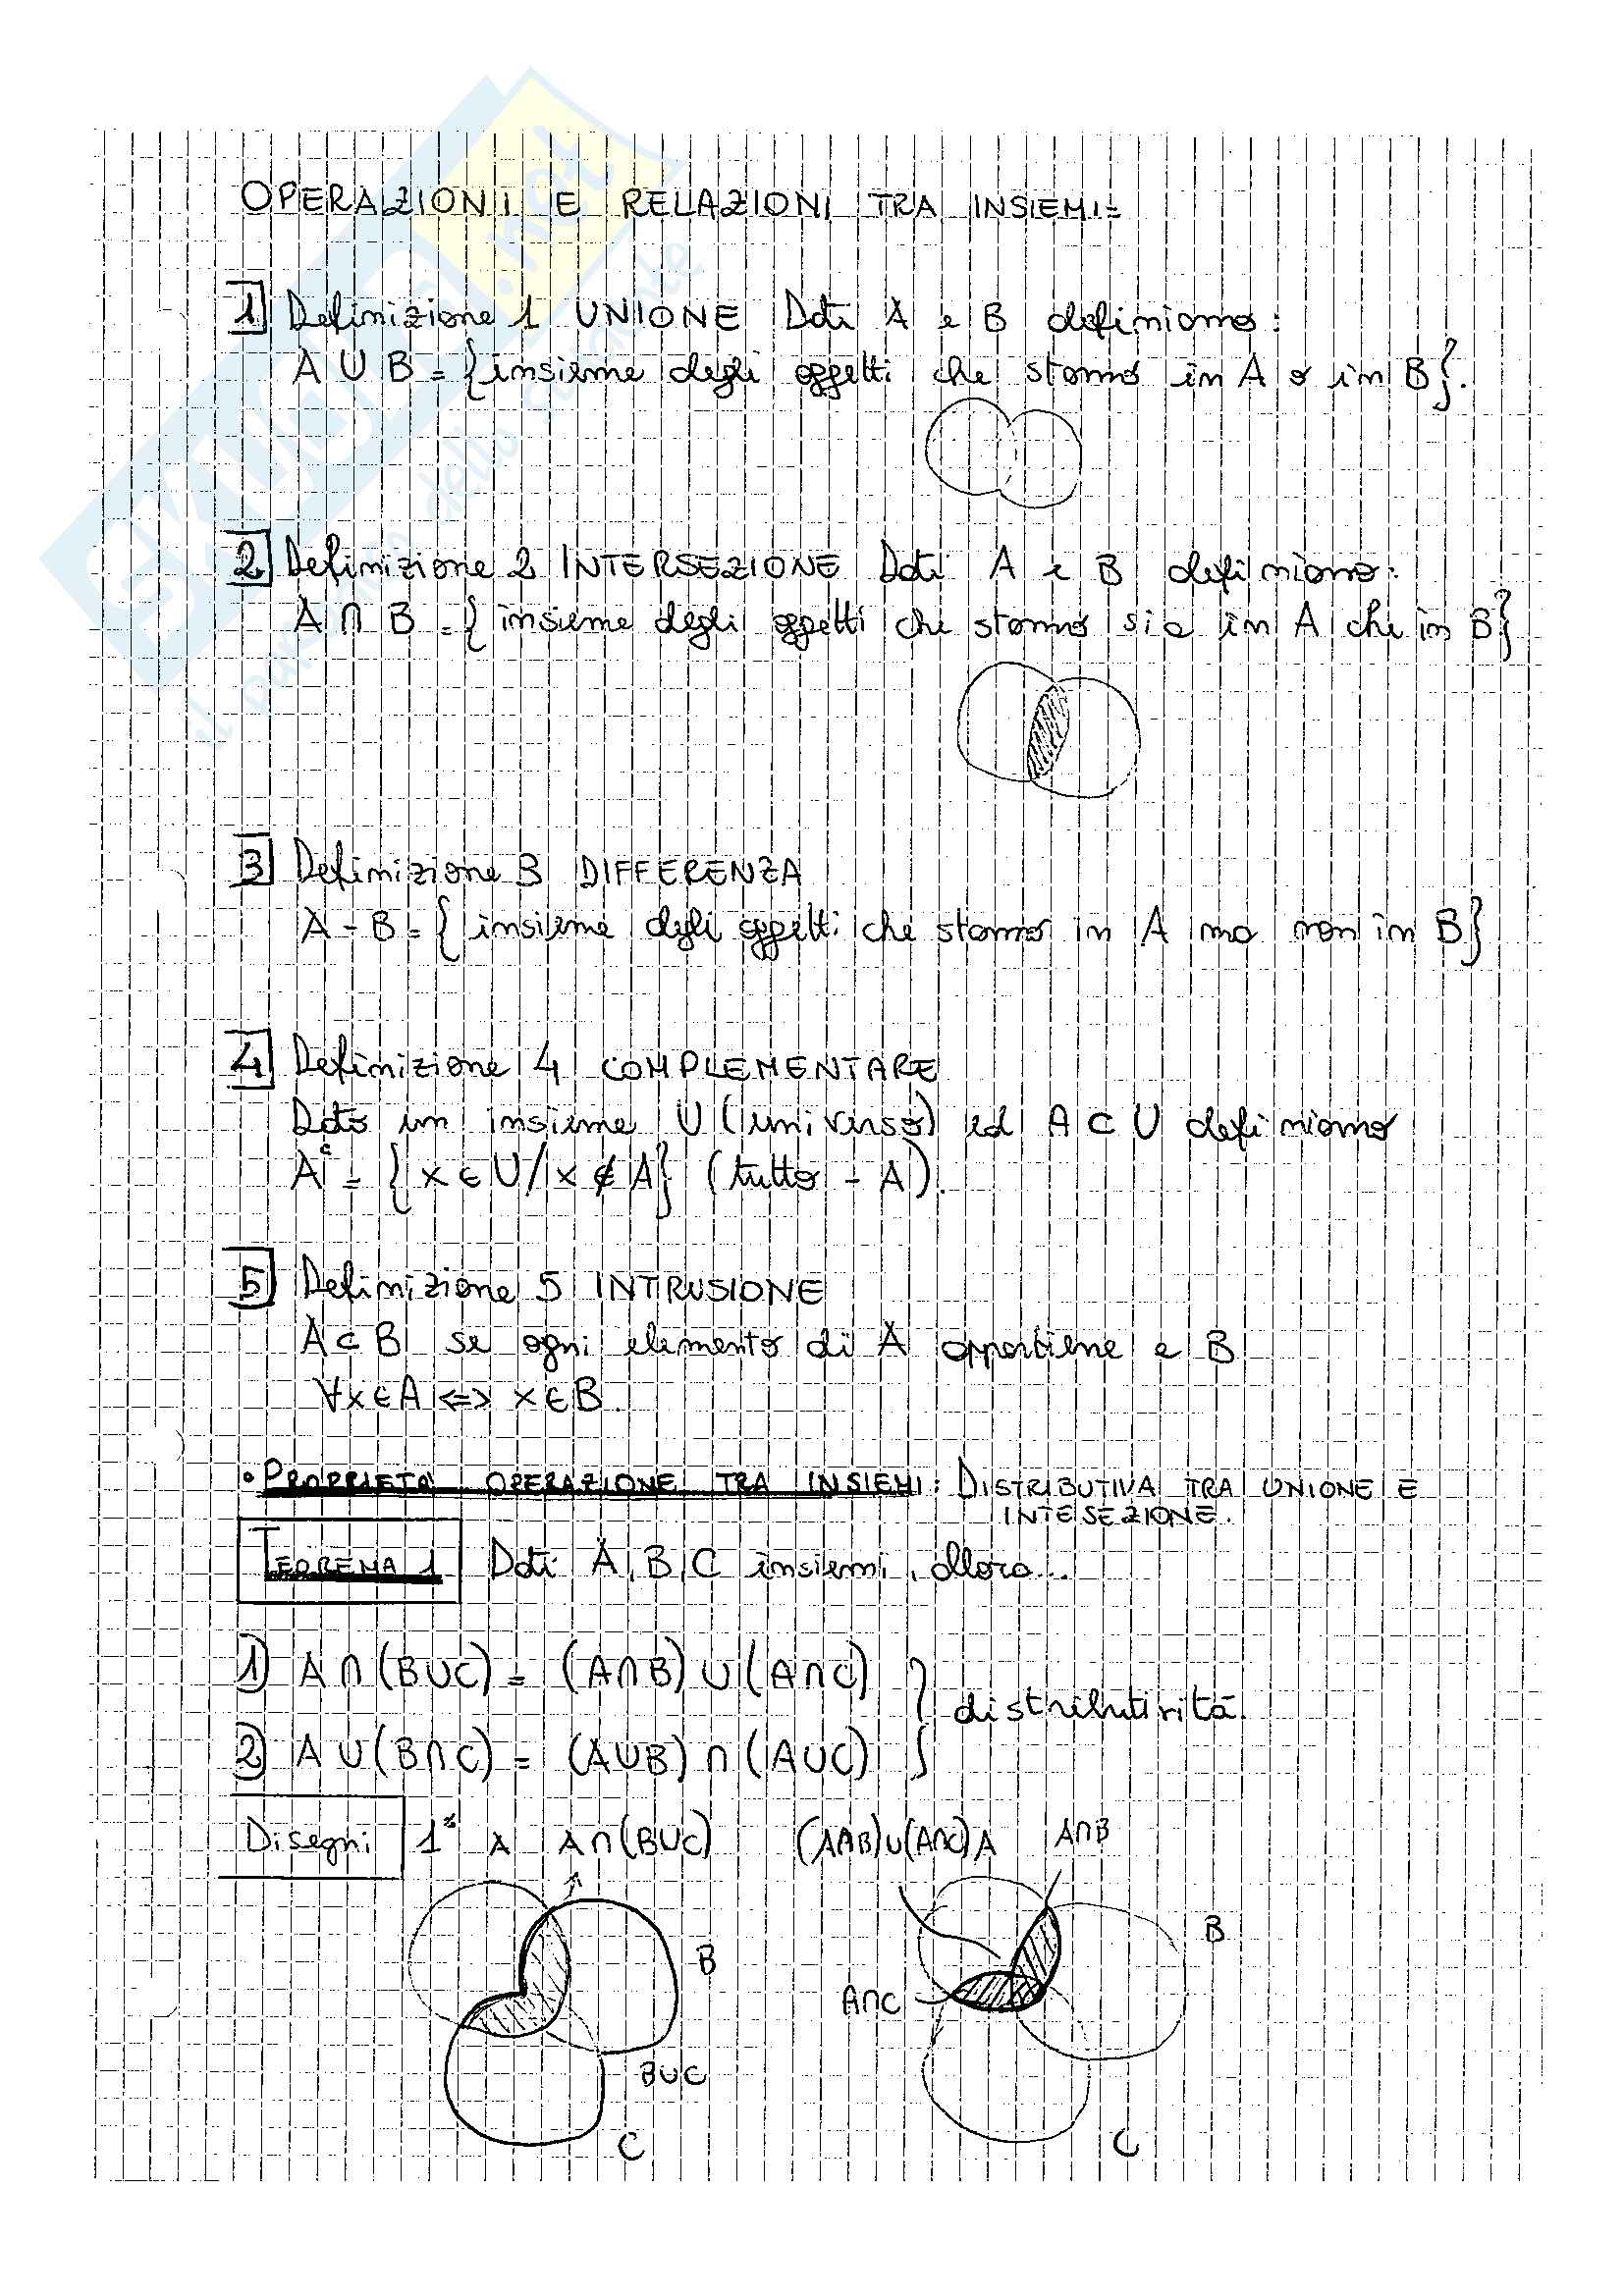 OPERAZIONI E RELAZIONI TRA INSIEMI=
1 Definizione 1 UNIONE Dati A e B definiamo:
A ∪ B = {insieme degli oggetti che stanno in A o in B}.
2 Definizione 2 INTERSEZIONE Dati A e B definiamo:
A ∩ B = { insieme degli oggetti che stanno sia in A che in B}
3 Definizione 3 DIFFERENZA
A - B = { insieme degli oggetti che stanno in A ma non in B}
4 Definizione 4 COMPLEMENTARE
Dato un insieme U (universo) ed A ⊂ U definiamo
Aᶜ = { x ∈ U / x ∉ A} (tutto - A).
5 Definizione 5 INTRUSIONE
A ⊂ B se ogni elemento di A appartiene a B
∀x ∈ A <=> x ∈ B.
• PROPRIETA' OPERAZIONE TRA INSIEMI: DISTRIBUTIVA TRA UNIONE E
INTESEZIONE.
TEOREMA 1 Dati A, B, C insiemi, allora...
1) A ∩ (B ∪ C) = (A ∩ B) ∪ (A ∩ C)
} distributività.
2) A ∪ (B ∩ C) = (A ∪ B) ∩ (A ∪ C)
Disegni 1° A A ∩ (B ∪ C) (A∩B)∪(A∩C) A A∩B
B B
A∩C
B∪C
C C
.net